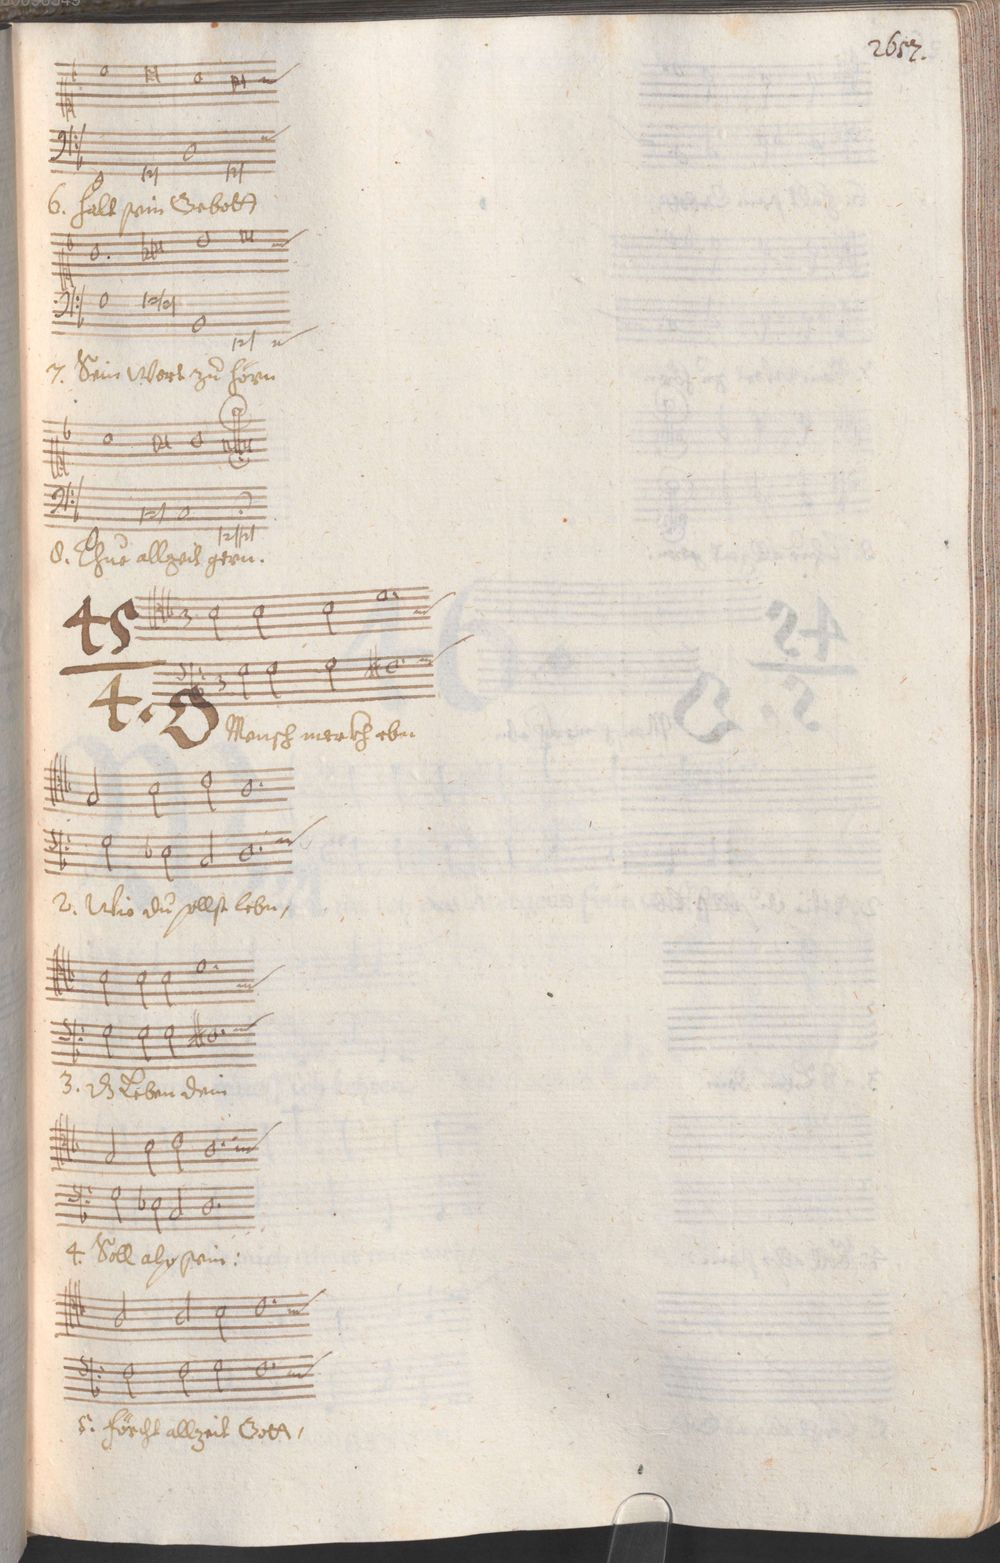 2657.
6. Halt sein Gebott
7. Sein Wort zu hörn
8. Thue allzeit gern.
45
4. O Mensch merckh ebn
2. Wie du sollst lebn,
3. Dz Leben dein
4. Soll also sein:
5. Förcht allzeit Gott,